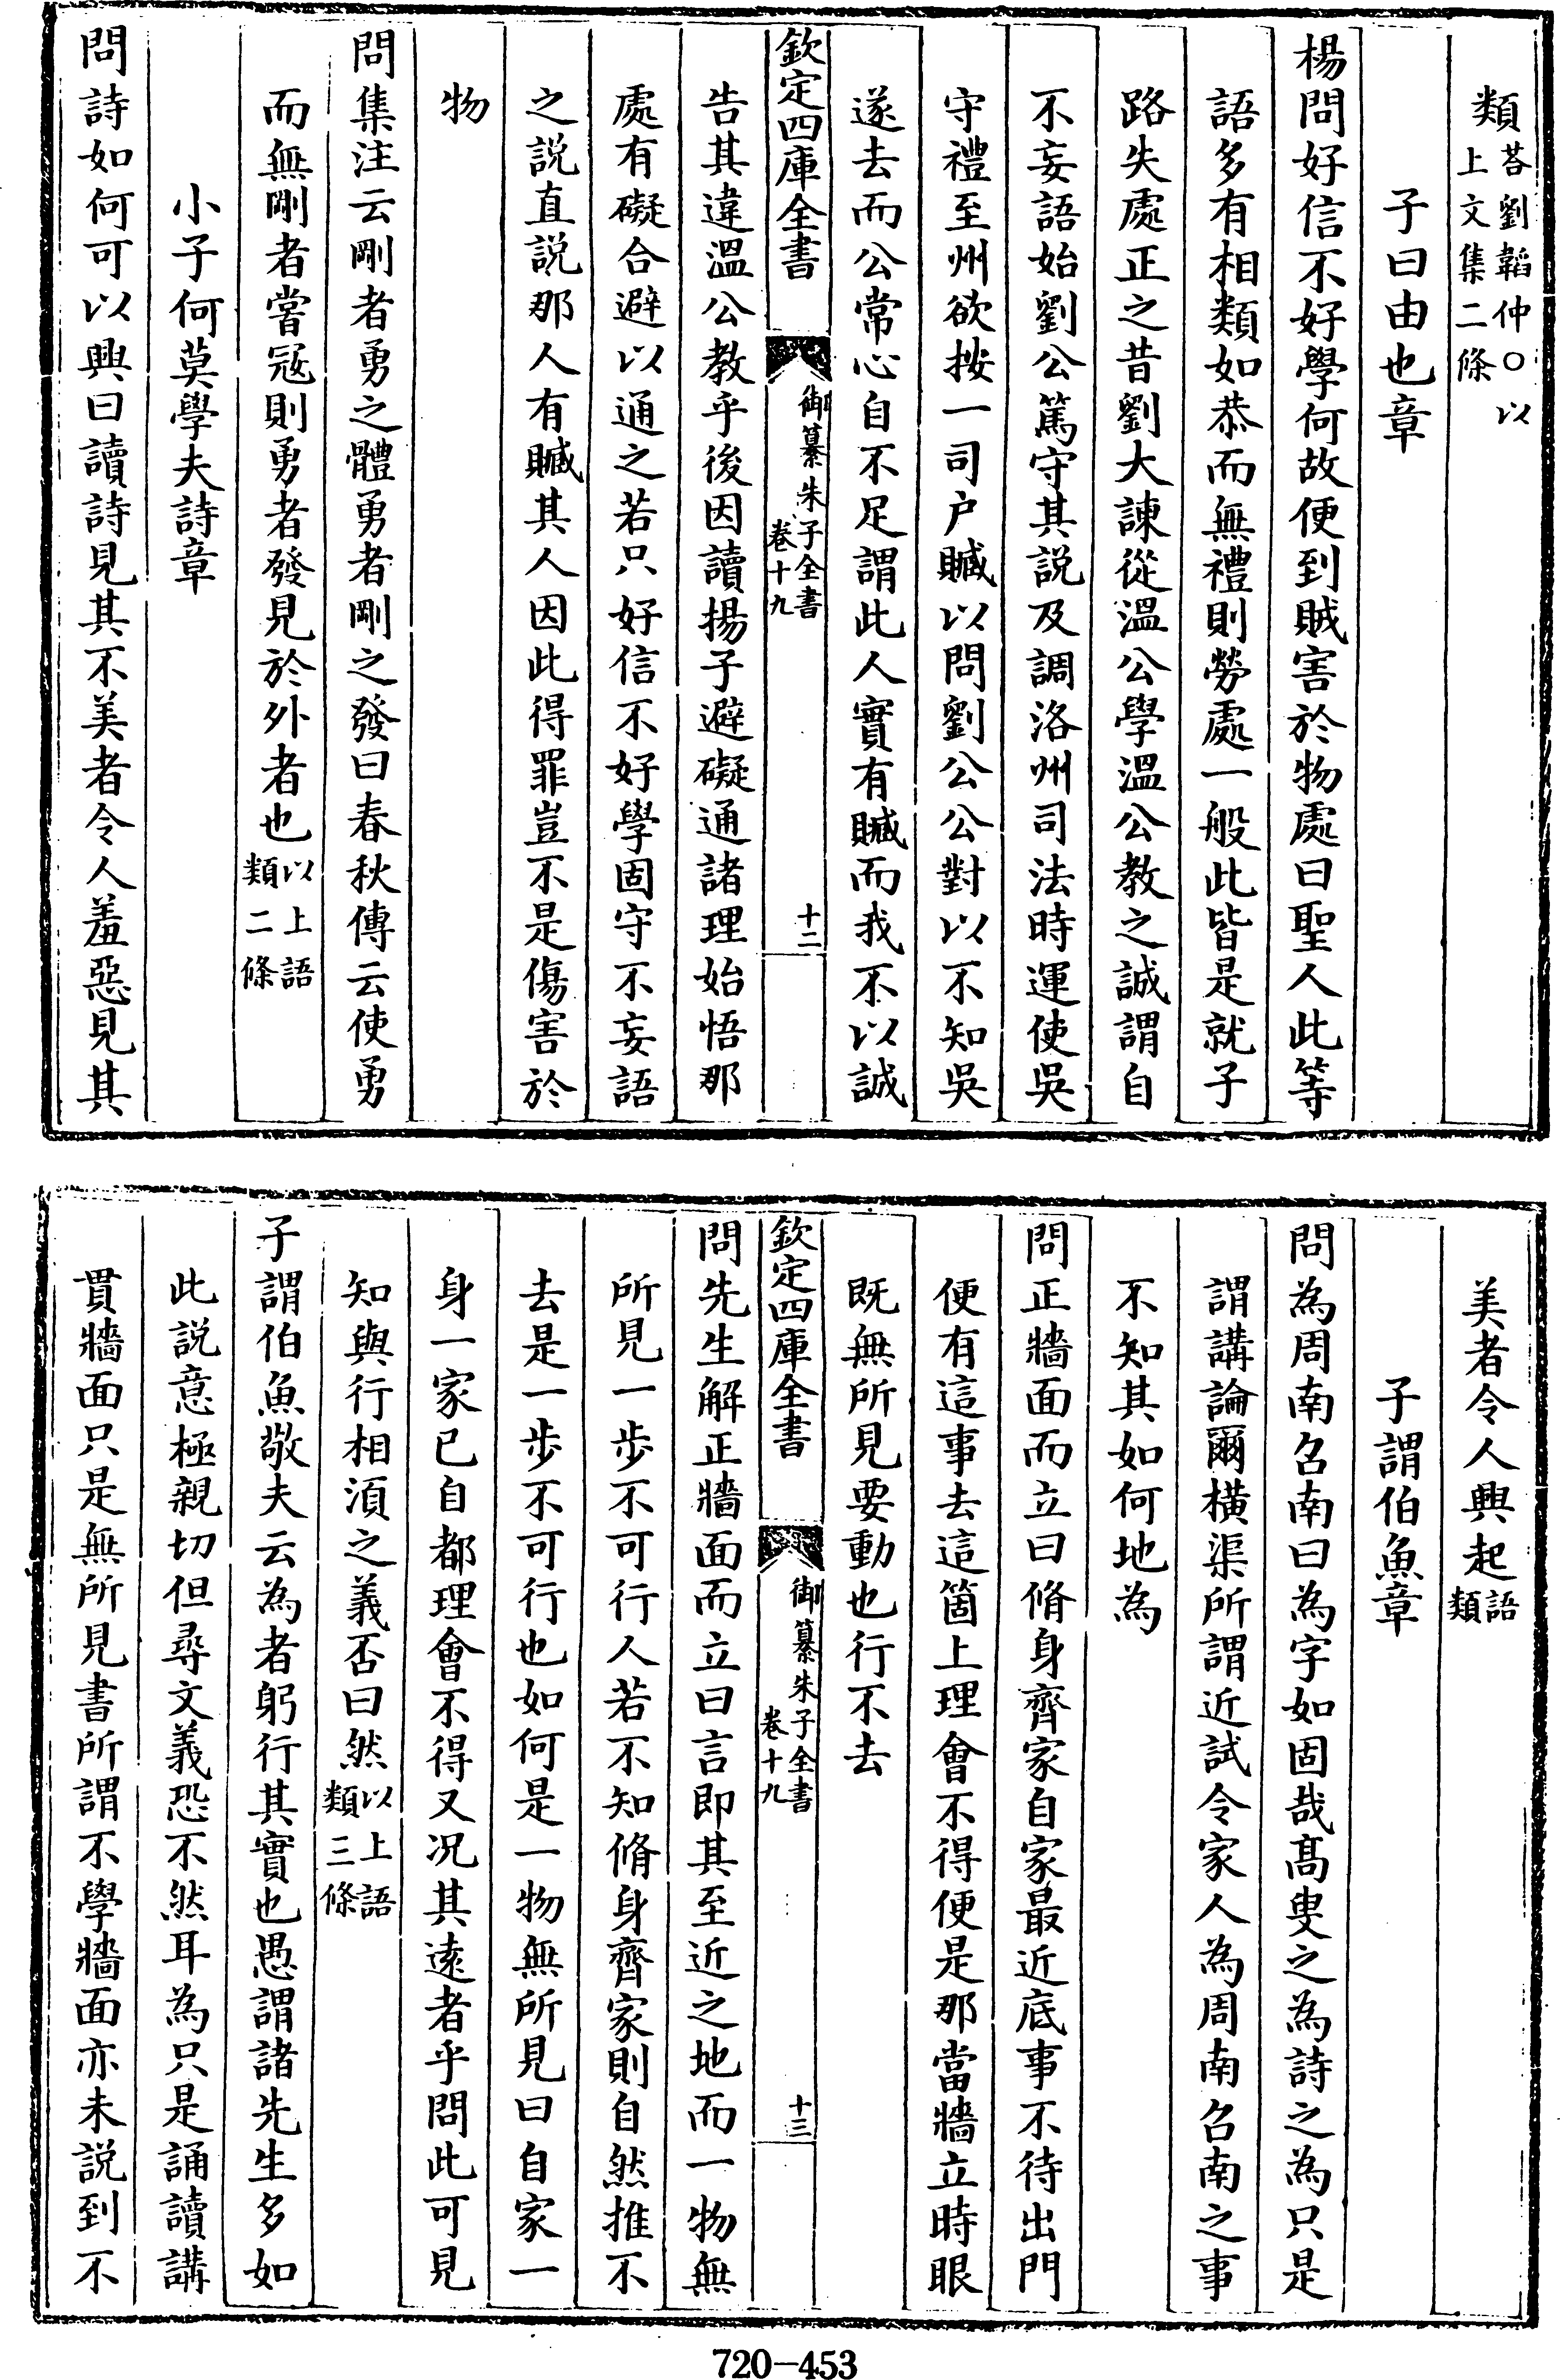 類荅劉韜仲○以上文集二條
子曰由也章
楊問好信不好學何故便到賊害於物處曰聖人此等
語多有相類如恭而無禮則勞處一般此皆是就子
路失處正之昔劉大諫從溫公學溫公教之誠謂自
不妄語始劉公篤守其説及調洛州司法時運使吳
守禮至州欲按一司户贓以問劉公公對以不知吳
遂去而公常心自不足謂此人實有贓而我不以誠
欽定四庫全書
御纂朱子全書
卷十九
十二
告其違溫公教乎後因讀揚子避礙通諸理始悟那
處有礙合避以通之若只好信不好學固守不妄語
之説直説那人有贓其人因此得罪豈不是傷害於
物
問集注云剛者勇之體勇者剛之發曰春秋傳云使勇
而無剛者嘗冦則勇者發見於外者也以上語類二條
小子何莫學夫詩章
問詩如何可以興曰讀詩見其不美者令人羞惡見其
美者令人興起語類
子謂伯魚章
問為周南召南曰為字如固哉髙叟之為詩之為只是
謂講論爾橫渠所謂近試令家人為周南召南之事
不知其如何地為
問正牆面而立曰脩身齊家自家最近底事不待出門
便有這事去這箇上理會不得便是那當牆立時眼
既無所見要動也行不去
欽定四庫全書
御纂朱子全書
卷十九
十三
問先生解正牆面而立曰言即其至近之地而一物無
所見一步不可行人若不知脩身齊家則自然推不
去是一步不可行也如何是一物無所見曰自家一
身一家已自都理會不得又况其逺者乎問此可見
知與行相湏之義否曰然以上語類三條
子謂伯魚敬夫云為者躬行其實也愚謂諸先生多如
此説意極親切但尋文義恐不然耳為只是誦讀講
貫牆面只是無所見書所謂不學牆面亦未説到不
720-453